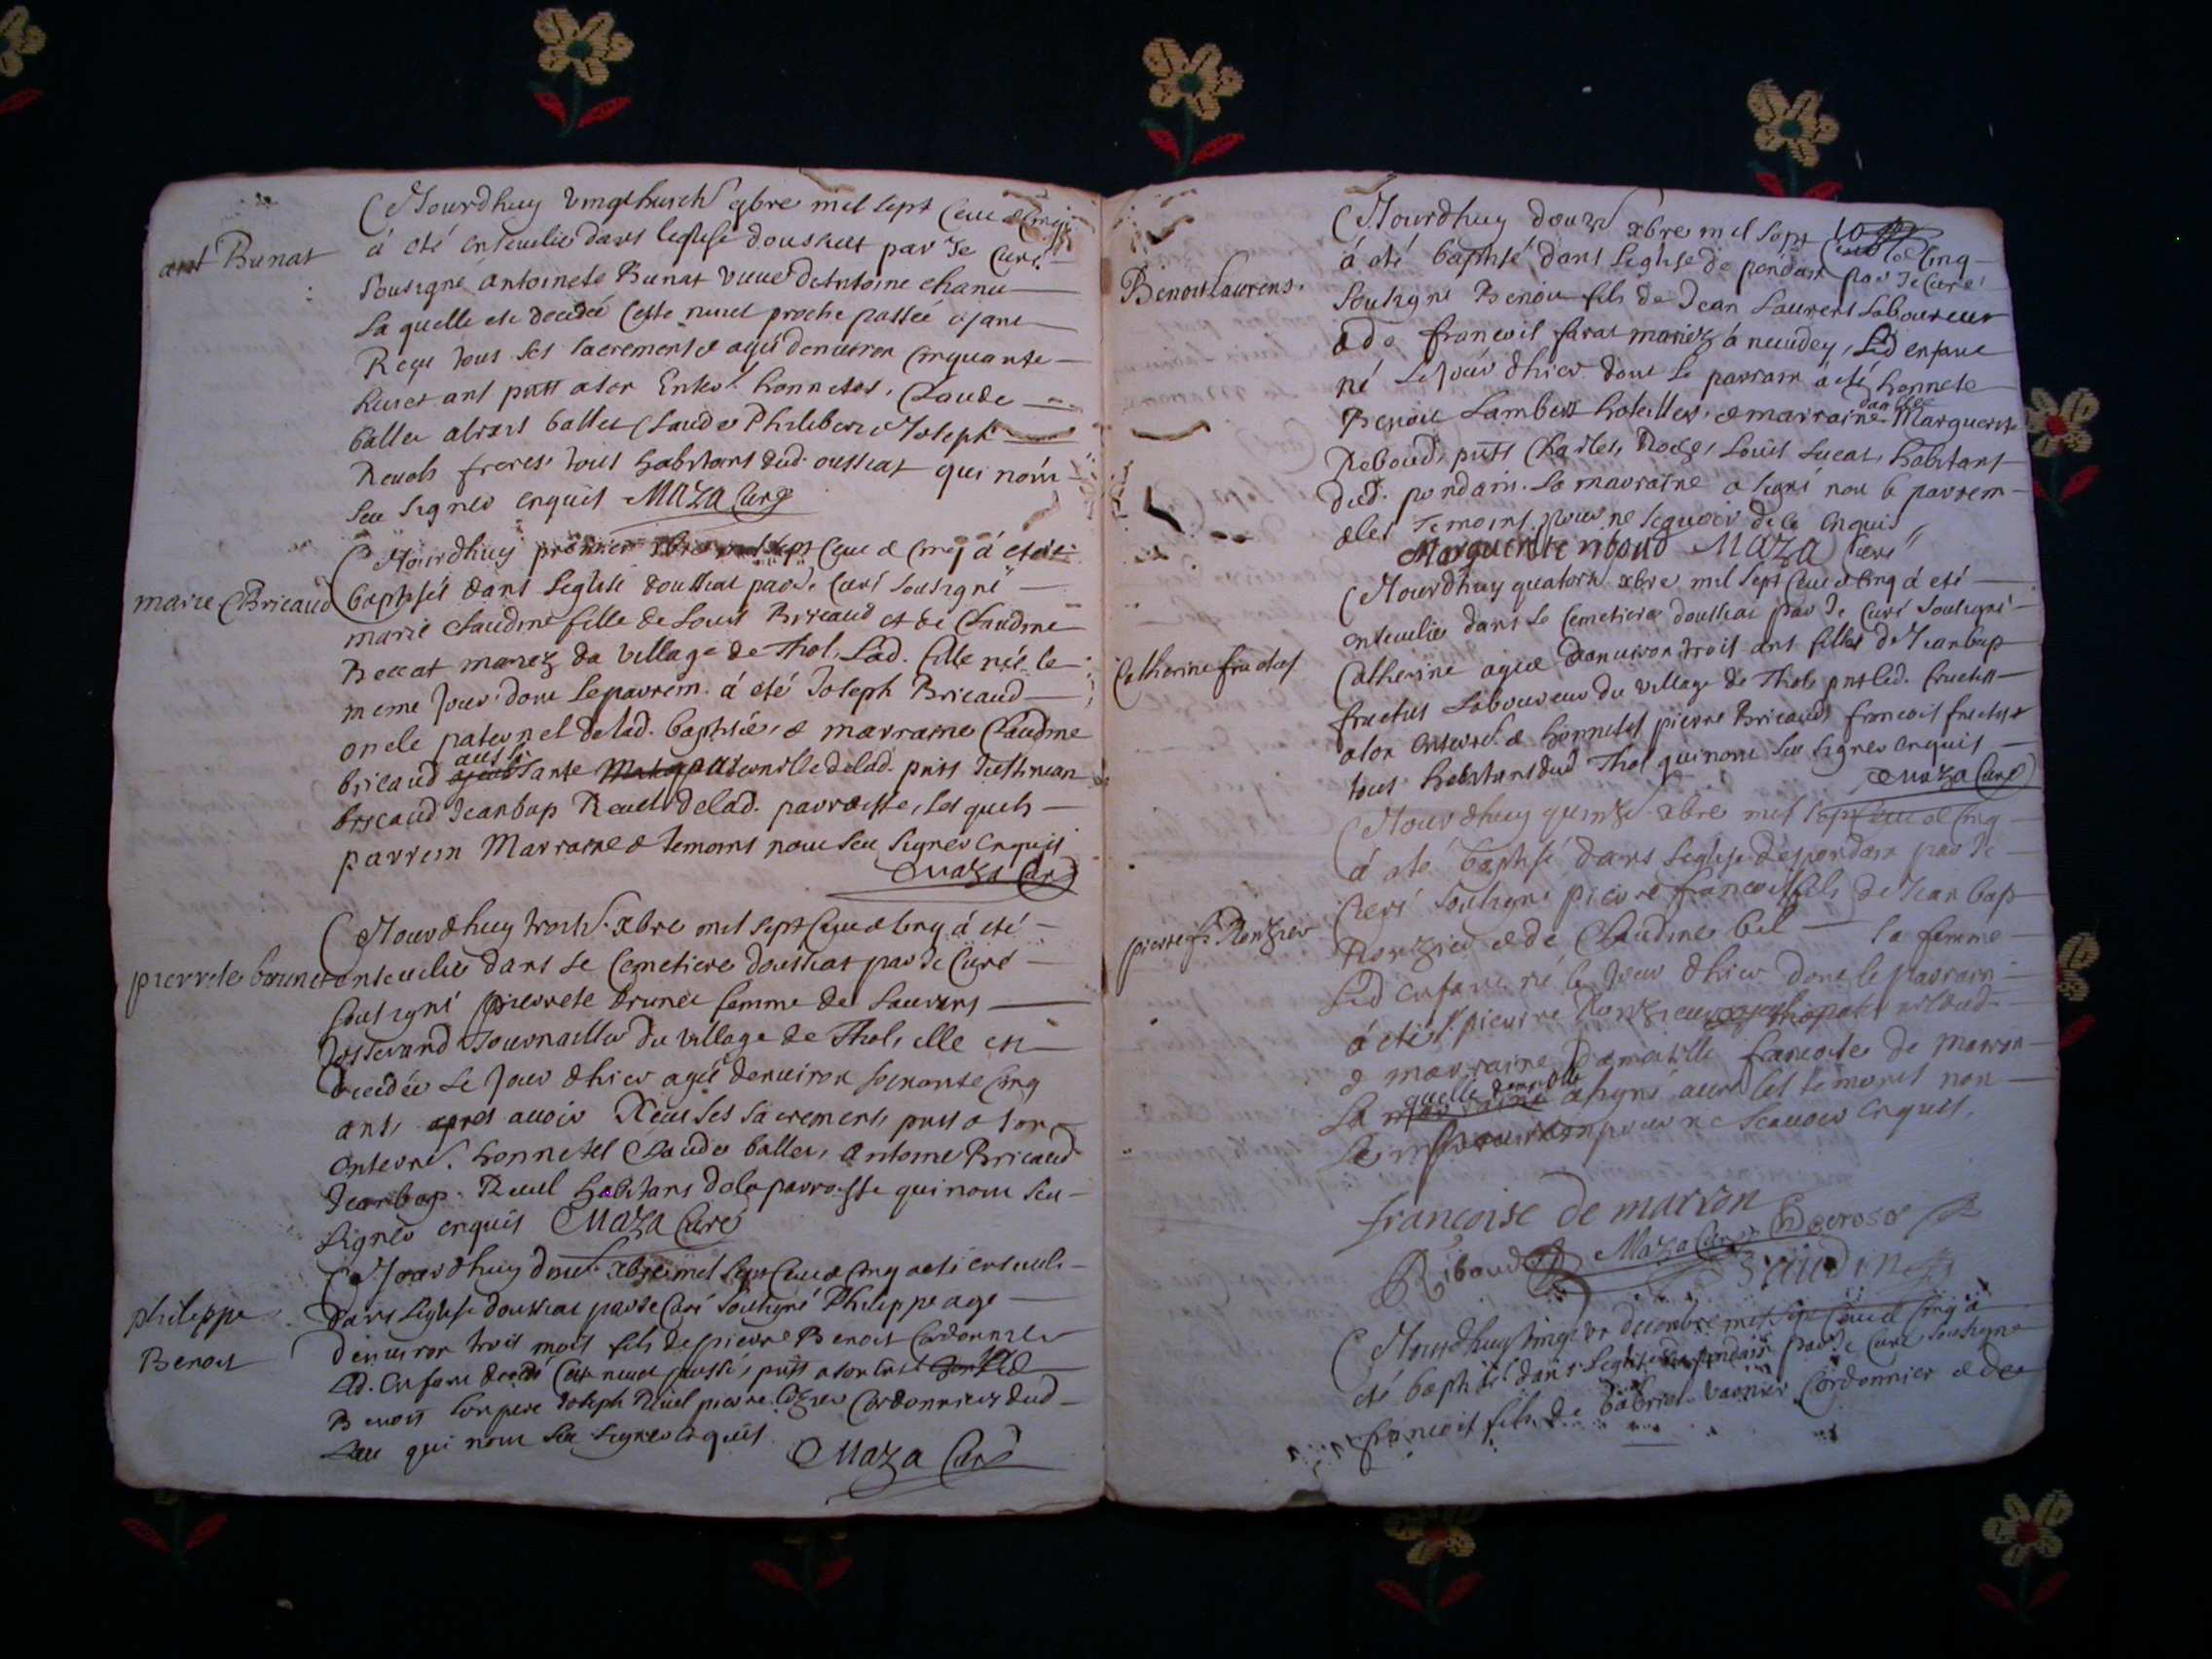 ant Bunat
Jourdhuy vingthuict 9bre mil sept cent & cinq
à eté enseuelie dans leglise doussiat par Je Curé
sousigne antoinete Bunat vueue dantoine chanu
la quelle est decedeé ceste nuict proche passeé ayant
Reçu tous ses sacrements ageé denuiron cinquante
huict ans pntt a son Enterr. honnetes, Claude
ballet alexis ballet Claude Philibert Joseph
Reuols freres tous habitans dud. oussiat qui nom
seu signer enquis MAZA Curé
marie Bricaud
Jourdhuy premier xbre mil sept cent & cinq à eteé
baptiseé dans leglise doussiat par Je Curé sousigné
marie Claudine fille de Louis Bricaud et de Claudine
Beccat mariez du village de Thol, Lad. fille neé le
meme Jour dont le parrein. à eté Joseph Bricaud
oncle paternel de lad. baptiseé, & marraine Claudine
bricaud aussi tante paternelle de lad. pntt
bricaud Jeanbap Reuel de lad. parroisse, les quels
parrein Marraine & temoins nont seu signer enquis
Maza Curé
pierrete brunet
Jourdhuy trois xbre mil sept cent & cinq à eté
enseuelie dans Le Cemetiere doussiat par Je Curé
sousigné pierrete brunet femme de Laurens
Journaillier du village de Thol, elle est
decedeé Le Jour dhier ageé denuiron soixante cinq
ans, apres auoir Receu ses sacrements pntt a son
enterré. honnetes Claude ballet, antoine Bricaud
Jeanbap. Reuel habitans de la parroisse qui nont seu
signer enquis MAZA Curé
philippe
Benoit
Jourdhuy douze xbre mil sept cent & cinq a eté enseueli
dans leglise doussiat par Je Curé sousigné Philippe age
denuiron trois mois fils de pierre Benoit Cordonnier
Led. enfant decedé ceste nuict passeé, pntt a son
Benoit son pere Joseph Reuel pierre Cordonniers dud
Lieu qui nont seu signer enquis
Maza Curé
Benoit Laurens.
Jourdhuy douze xbre mil sept cent & cinq
à eté baptisé dans leglise de pondain par Je Curé
sousigné Benoit fils de Jean Laurens Laboureur
& de francoise farat mariez à neudey, Led enfant
né le Jour dhier dont le parrain à eté honnete
Benoit Lambert hotellier, & marraine damlle Marguerite
Reboud, pntt Charles Roche, Louis Lucas, habitans
dud. pondain. La marraine a signé non le parrein
& les temoins pour ne sçauoir de ce enquis
Marguerite riboud MAZA Curé
Catherine fructus
Jourdhuy quatorze xbre mil sept cent & cinq à eté
enseuelie dans Le Cemetiere doussiat par Je Curé sousigné
Catherine ageé denuiron trois ans fille de Jeanbap
fructus Laboureur du village de Thol pnt led. fructus
a son enterré. & honnetes pierre Bricaud francois fructus
tous habitans dud Thol qui nont seu signer enquis
Maza Curé
pierre fs. Ronzier
Jourdhuy quinze xbre mil sept cent & cinq
à eté baptisé dans leglise de pondain par Je
Curé sousigné pierre francois fils de Jean bap
Ronzier & de Claudine bel la femme
Led enfant né le Jour dhier dont le parrain
à eté pierre Ronzier
& marraine Damoiselle francoise de Marron
La quelle damlle a signé auec les temoins non
Le parrain pour ne scauoir enquis.
françoise de marron
Riboud Maza Curé
Jourdhuy decembre mil sept cent & cinq à
eté baptisé dans leglise de pondain par Je Curé sousigné
francois fils de Gabriel varnier Cordonnier & de